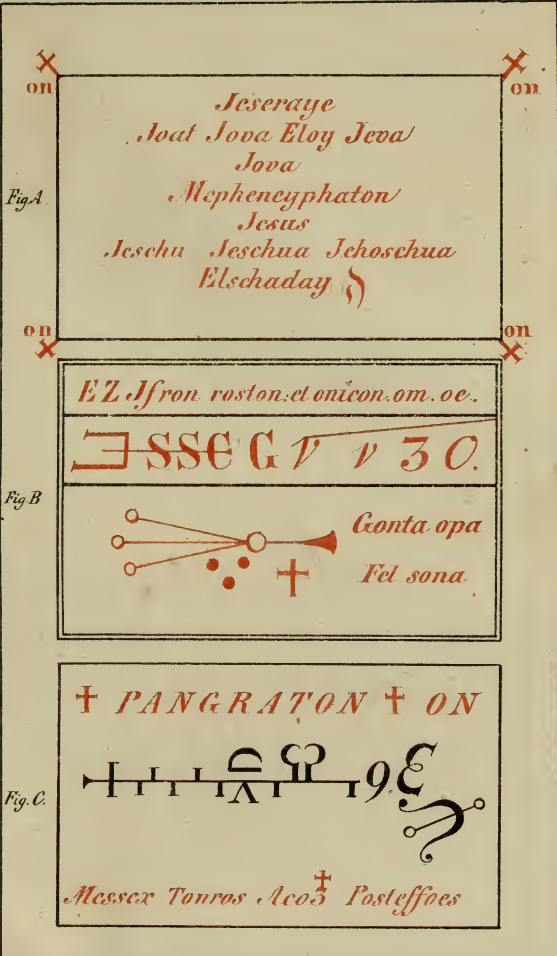 on on
Jeseraye
Joat Jova Eloy Jeva
Jova
Fig.A
Mepheneyphaton
Jesus
Jeschu Jeschua Jehoschua
Elschaday
on on
EZ Jfron roston: et onicon. om. oe.
SSE G V v 30.
Fig.B
Gonta opa
Fel sona
✝ PANGRATON ✝ ON
Fig. C.
Messex Tonros Acoʒ Posteffoes